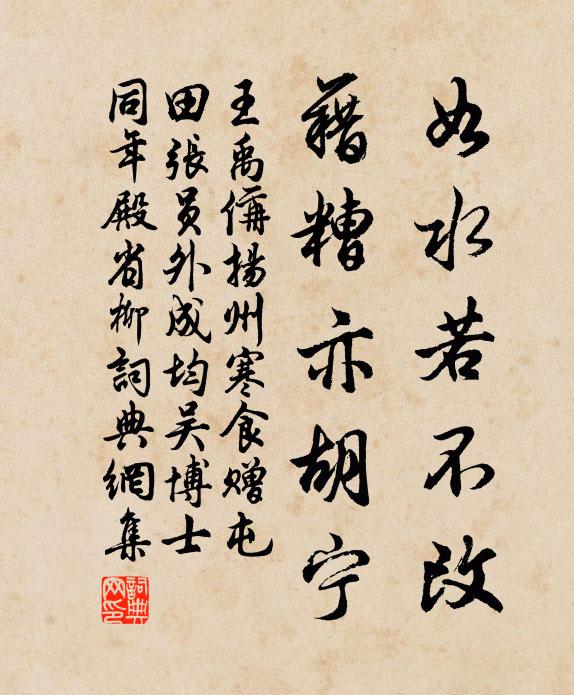 如水若不改
藉糟亦胡宁
王禹偁揚州寒食赠屯
田張員外成均吴博士
同年殿省柳詞典網集
詞典
网印